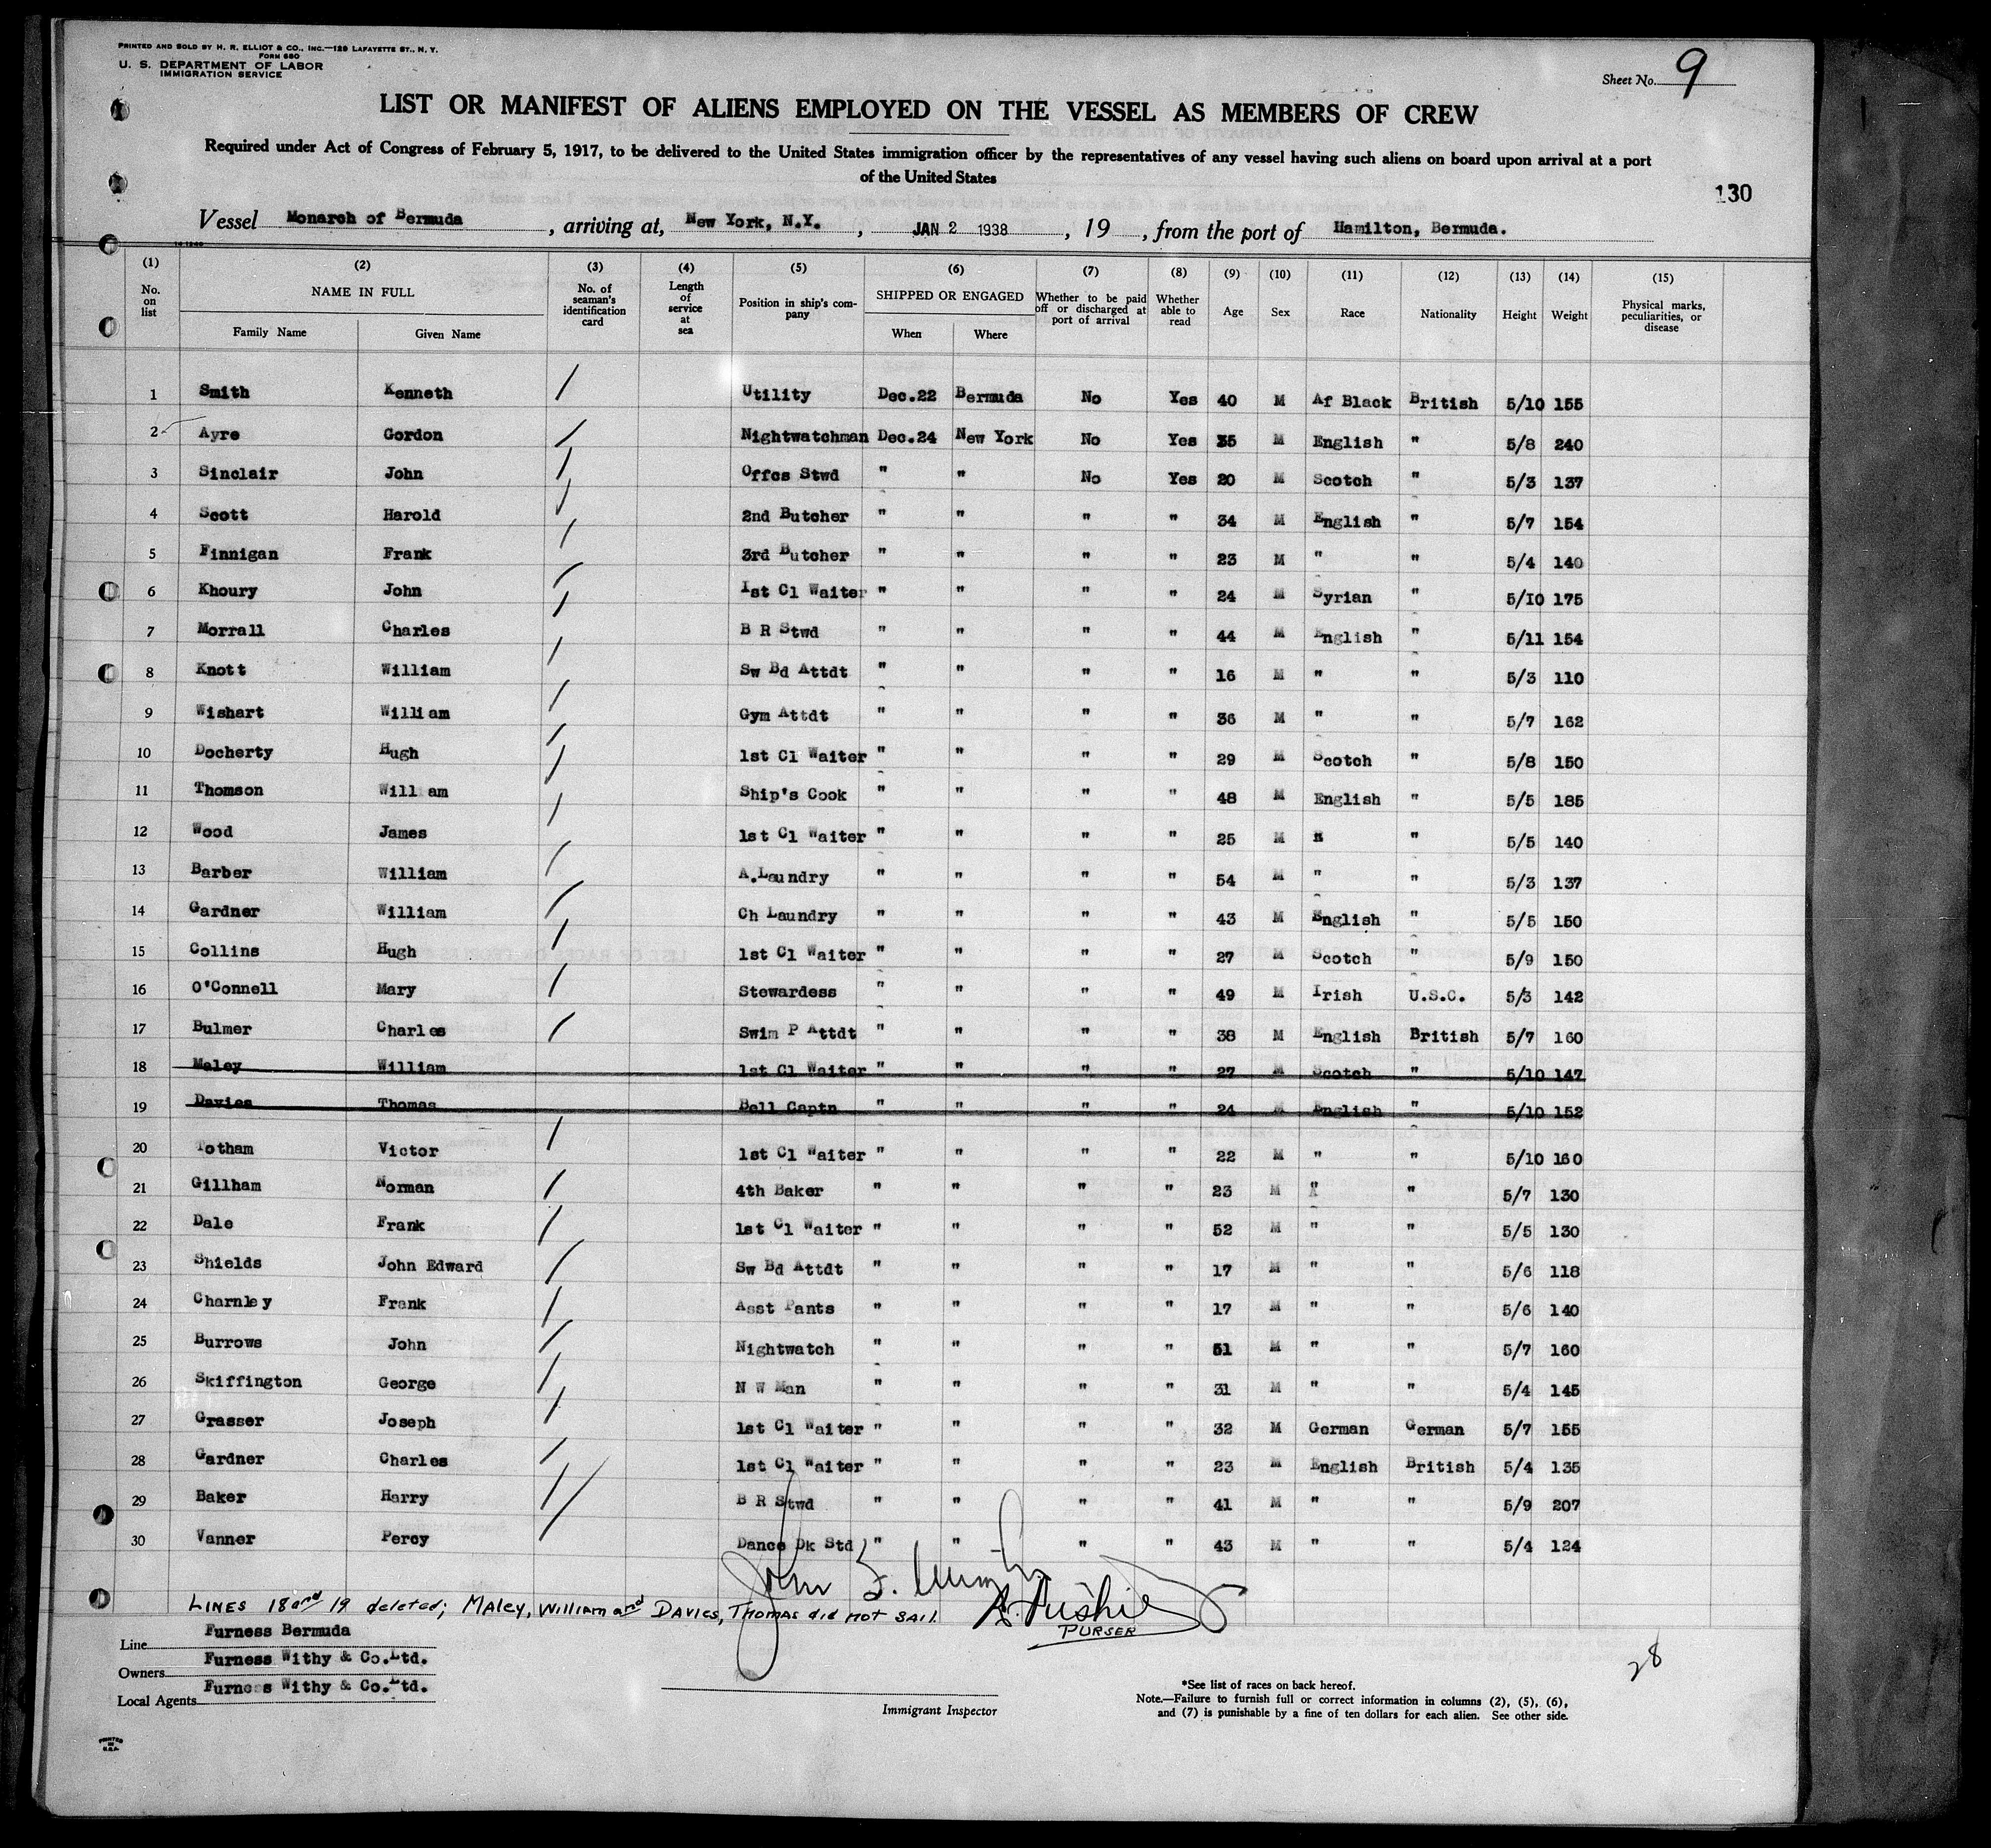 PRINTED AND SOLD BY H. R. ELLIOT & CO., INC.—129 LAFAYETTE ST., N. Y.
FORM 680
U. S. DEPARTMENT OF LABOR
IMMIGRATION SERVICE
Sheet No. 9
LIST OR MANIFEST OF ALIENS EMPLOYED ON THE VESSEL AS MEMBERS OF CREW
Required under Act of Congress of February 5, 1917, to be delivered to the United States immigration officer by the representatives of any vessel having such aliens on board upon arrival at a port
of the United States
130
Vessel Monarch of Bermuda, arriving at, New York, N.Y., JAN 2 1938, 19 , from the port of Hamilton, Bermuda.
(1) (2) (3) (4) (5) (6) (7) (8) (9) (10) (11) (12) (13) (14) (15)
No. on list NAME IN FULL Family Name Given Name No. of seaman's identification card Length of service at sea Position in ship's company SHIPPED OR ENGAGED When Where Whether to be paid off or discharged at port of arrival Whether able to read Age Sex Race Nationality Height Weight Physical marks, peculiarities, or disease
1 Smith Kenneth Utility Dec.22 Bermuda No Yes 40 M Af Black British 5/10 155
2 Ayre Gordon Nightwatchman Dec.24 New York No Yes 35 M English " 5/8 240
3 Sinclair John Offcs Stwd " " No Yes 20 M Scotch " 5/3 137
4 Scott Harold 2nd Butcher " " " " 34 M English " 5/7 154
5 Finnigan Frank 3rd Butcher " " " " 23 M " " 5/4 140
6 Khoury John 1st Cl Waiter " " " " 24 M Syrian " 5/10 175
7 Morrall Charles B R Stwd " " " " 44 M English " 5/11 154
8 Knott William Sw Bd Attdt " " " " 16 M " " 5/3 110
9 Wishart William Gym Attdt " " " " 36 M " " 5/7 162
10 Docherty Hugh 1st Cl Waiter " " " " 29 M Scotch " 5/8 150
11 Thomson Will am Ship's Cook " " " " 48 M English " 5/5 185
12 Wood James 1st Cl Waiter " " " " 25 M " " 5/5 140
13 Barber William A.Laundry " " " " 54 M " " 5/3 137
14 Gardner William Ch Laundry " " " " 43 M English " 5/5 150
15 Collins Hugh 1st Cl Waiter " " " " 27 M Scotch " 5/9 150
16 O'Connell Mary Stewardess " " " " 49 M Irish U.S.C. 5/3 142
17 Bulmer Charles Swim P Attdt " " " " 38 M English British 5/7 160
18 Maley William 1st Cl Waiter " " " " 27 M Scotch " 5/10 147
19 Davies Thomas Bell Captn " " " " 24 M English " 5/10 152
20 Totham Victor 1st Cl Waiter " " " " 22 M " " 5/10 160
21 Gillham Norman 4th Baker " " " " 23 M " " 5/7 130
22 Dale Frank 1st Cl Waiter " " " " 52 M " " 5/5 130
23 Shields John Edward Sw Bd Attdt " " " " 17 M " " 5/6 118
24 Charnley Frank Asst Pants " " " " 17 M " " 5/6 140
25 Burrows John Nightwatch " " " " 51 M " " 5/7 160
26 Skiffington George N W Man " " " " 31 M " " 5/4 145
27 Grasser Joseph 1st Cl Waiter " " " " 32 M German German 5/7 155
28 Gardner Charles 1st Cl Waiter " " " " 23 M English British 5/4 135
29 Baker Harry B R Stwd " " " " 41 M " " 5/9 207
30 Vanner Percy Dance Dk Std " " " " 43 M " " 5/4 124
LINES 18 and 19 deleted; MALEY, William and DAVIES, THOMAS did not sail.
John F.
PURSER
Line Furness Bermuda
Owners Furness Withy & Co.Ltd.
Local Agents Furness Withy & Co.Ltd.
28
Immigrant Inspector
*See list of races on back hereof.
Note.—Failure to furnish full or correct information in columns (2), (5), (6),
and (7) is punishable by a fine of ten dollars for each alien. See other side.
PRINTED IN U.S.A.